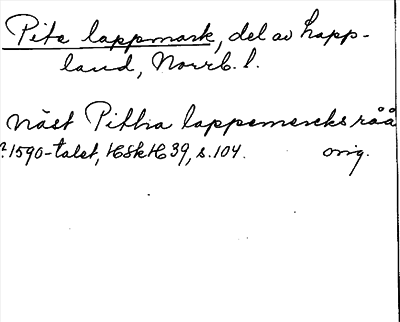 Pite lappmark, del av Lapp-
land, Norrb. l.
näst Pittha lappemarcks råå
?1590-talet, HSkH 39, s.104. orig.